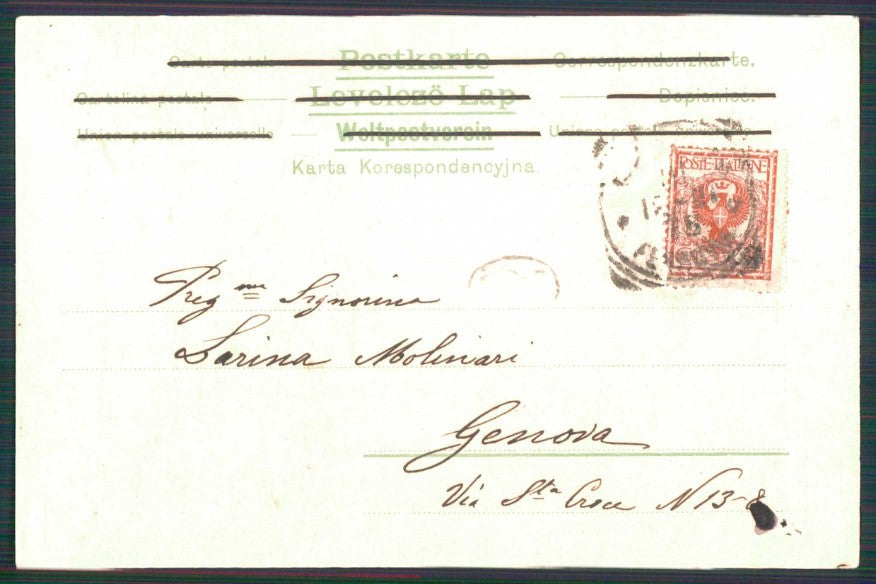 Carte postale — Postkarte — Correspondenzkarte.
Cartolina postale — Levelező Lap — Dopisnice.
Union postale universelle — Weltpostverein — Unione postale
Karta Korespondencyjna.
POSTE ITALIANE
Preg ma Signorina
Larina Molinari
Genova
Via Sta Croce N 13-8